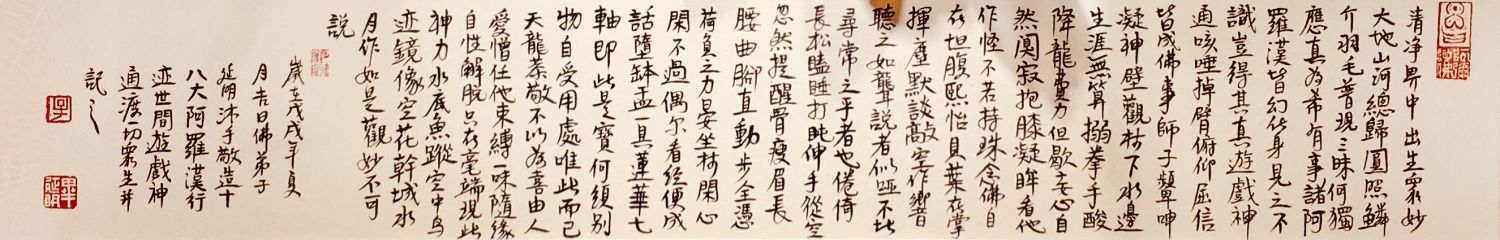 清淨界中出生眾妙
大地山河總歸圓照鱗
介羽毛普現三昧何獨
應真為希有事諸阿
羅漢皆幻化身見之不
識豈得其真遊戲神
通咳唾掉臂俯仰屈信
皆成佛事師子顰呻
凝神壁觀林下水邊
生涯無算搦拳手酸
降龍費力但歇妄心自
然闃寂抱膝凝眸看他
作怪不若持珠念佛自
在坦腹熙怡貝葉在掌
揮塵默談敲空作響
聽之如聾說者似啞不比
尋常之乎者也倦倚
長松瞌睡打盹伸手從空
忽然提醒骨瘦眉長
腰曲腳直動步全憑
荷負之力晏坐林間心
閑不過偶尔看經便成
話墮缽盂一具蓮華七
軸即此是寶何須別
物自受用處唯此而已
天龍恭敬不以為喜由人
愛憎任他束縛一味隨緣
自性解脫只在毫端現此
神力水底魚蹤空中鸟
迹鏡像空花幹城水
月作如是觀妙不可
說
歲在戊戌年貞
月吉日佛弟子
延明沐手敬造十
八大阿羅漢行
迹世間遊戲神
通渡一切眾生并
記之